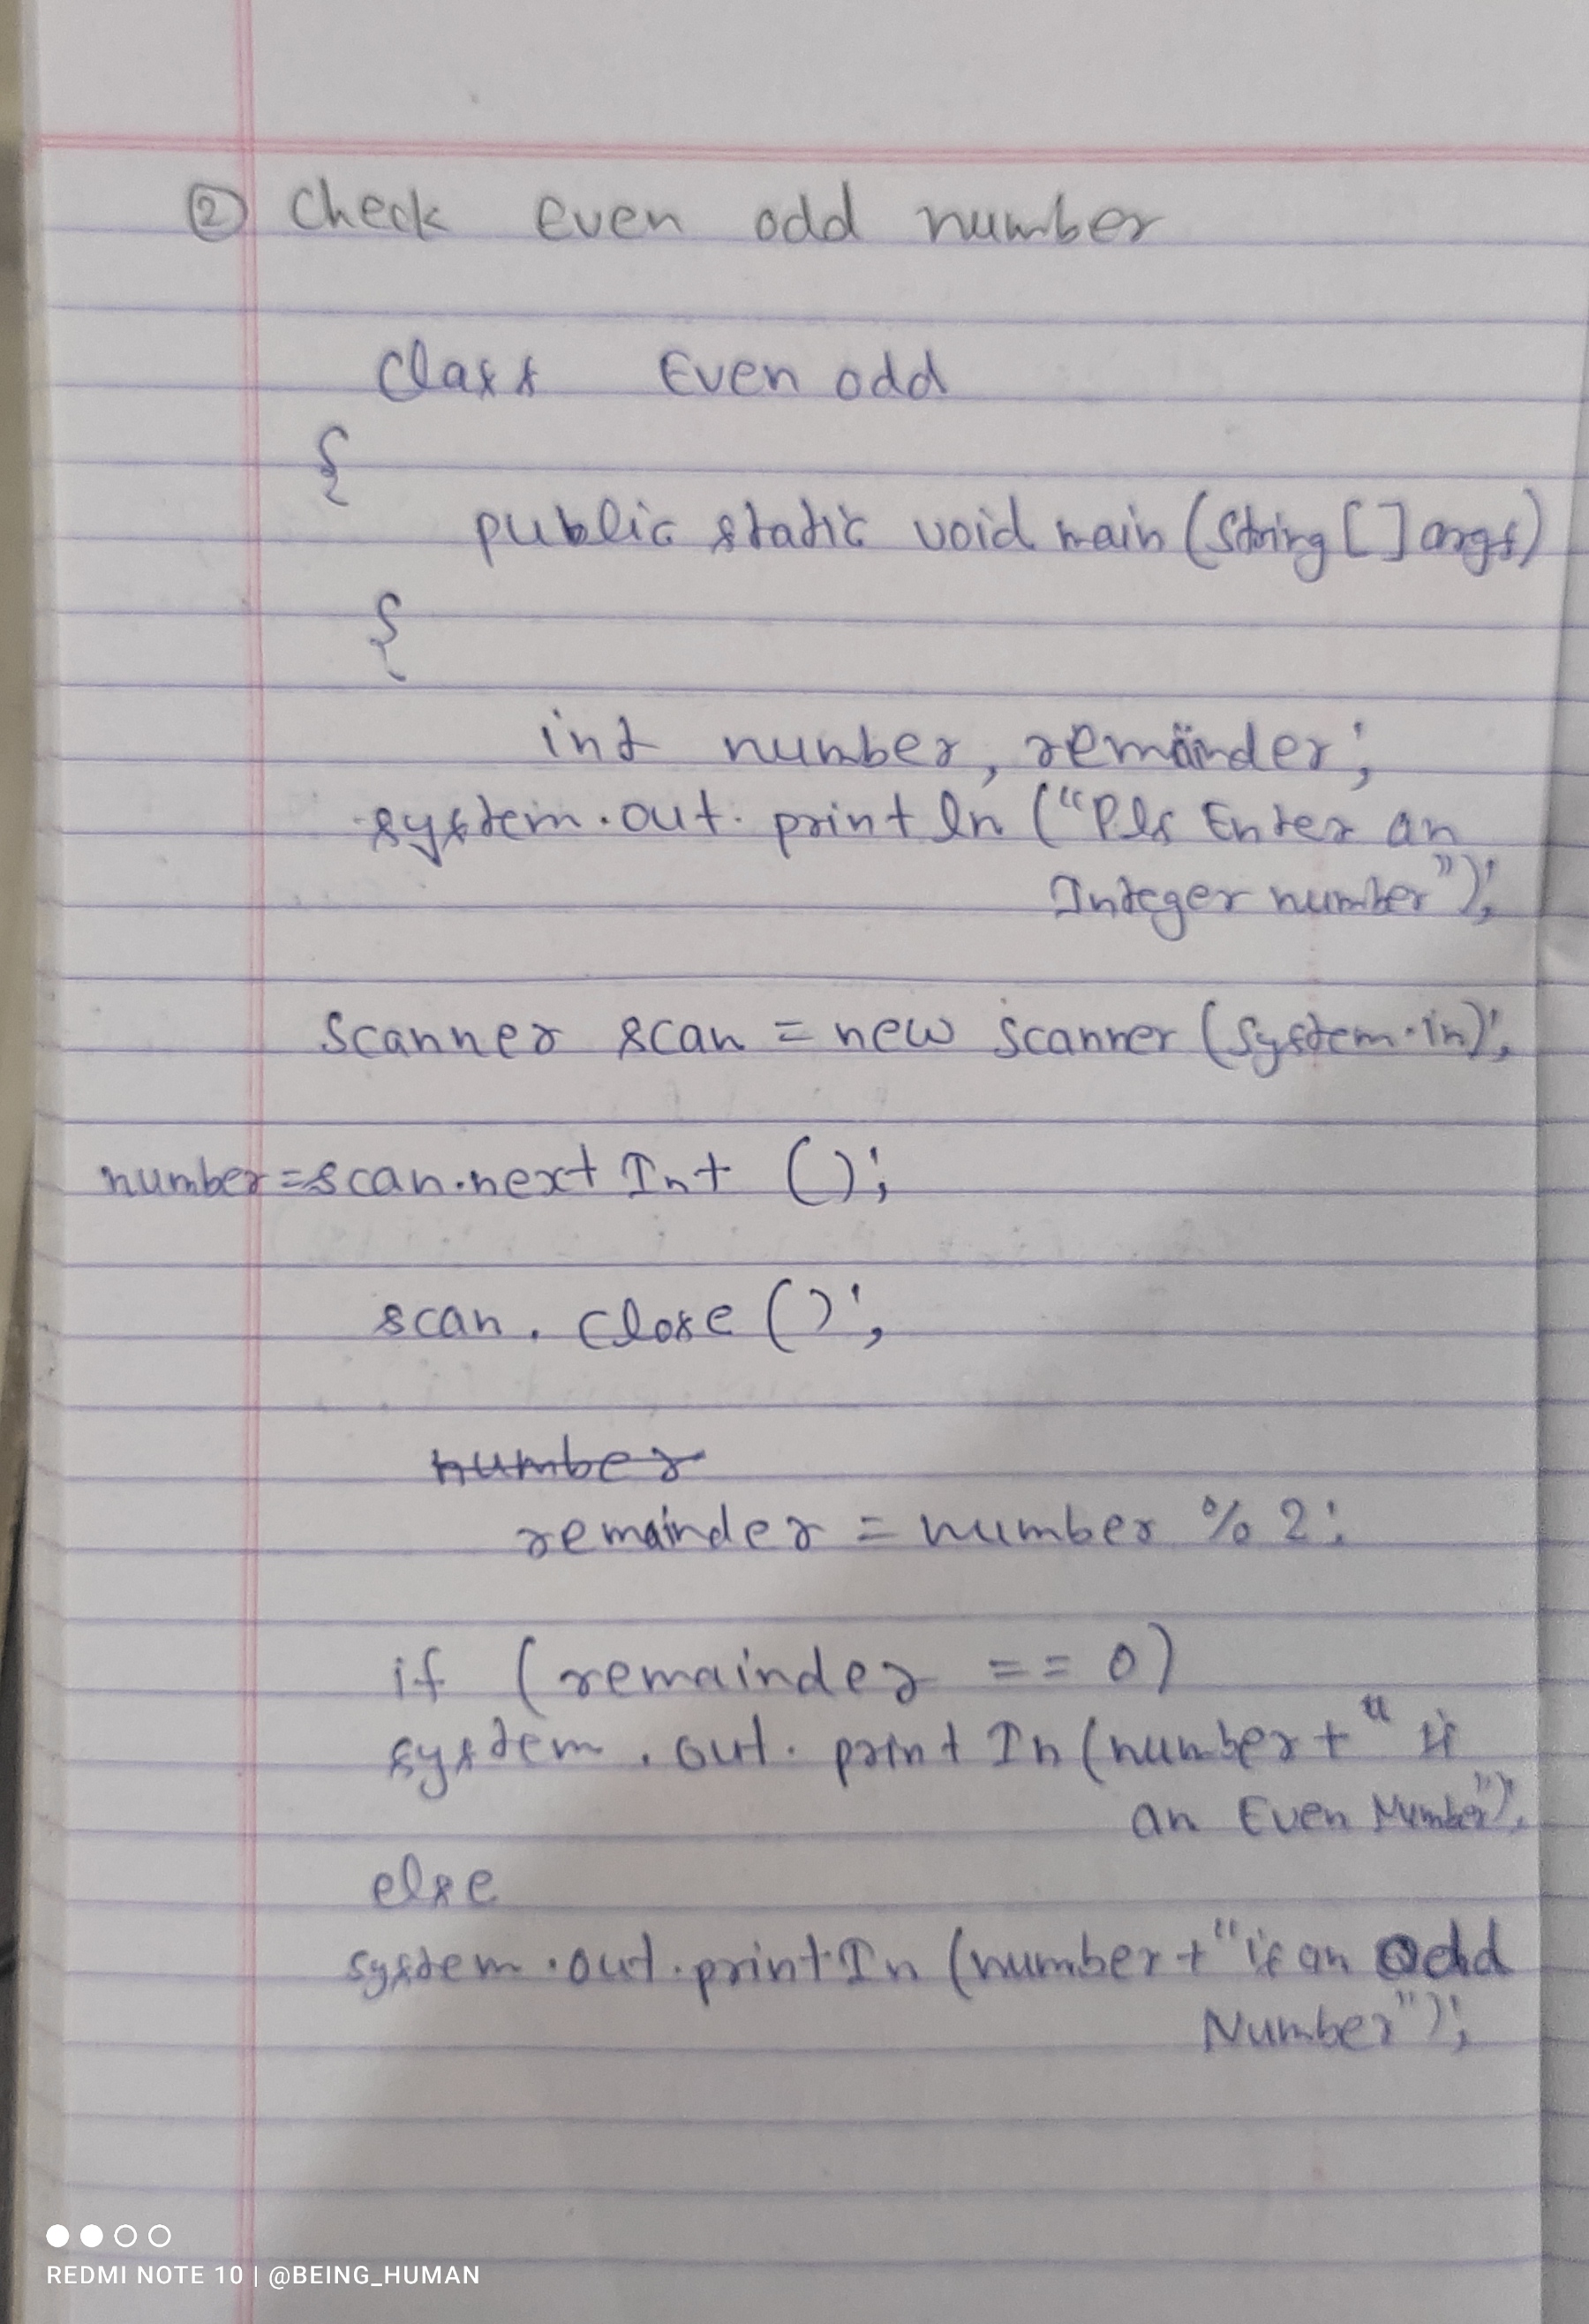 ② Check Even odd number
class Even odd
{
public static void main (String [ ] args)
{
int number, remainder;
system.out.println ("Pls Enter an
Integer number");
Scanner scan = new scanner (System.in);
number=scan.next Int ();
scan.close ();
number
remainder = number % 2;
if (remainder == 0)
system.out.print In (number+" is
an Even Number");
else
system.out.print In (number+"is an Odd
Number");
REDMI NOTE 10 | @BEING_HUMAN